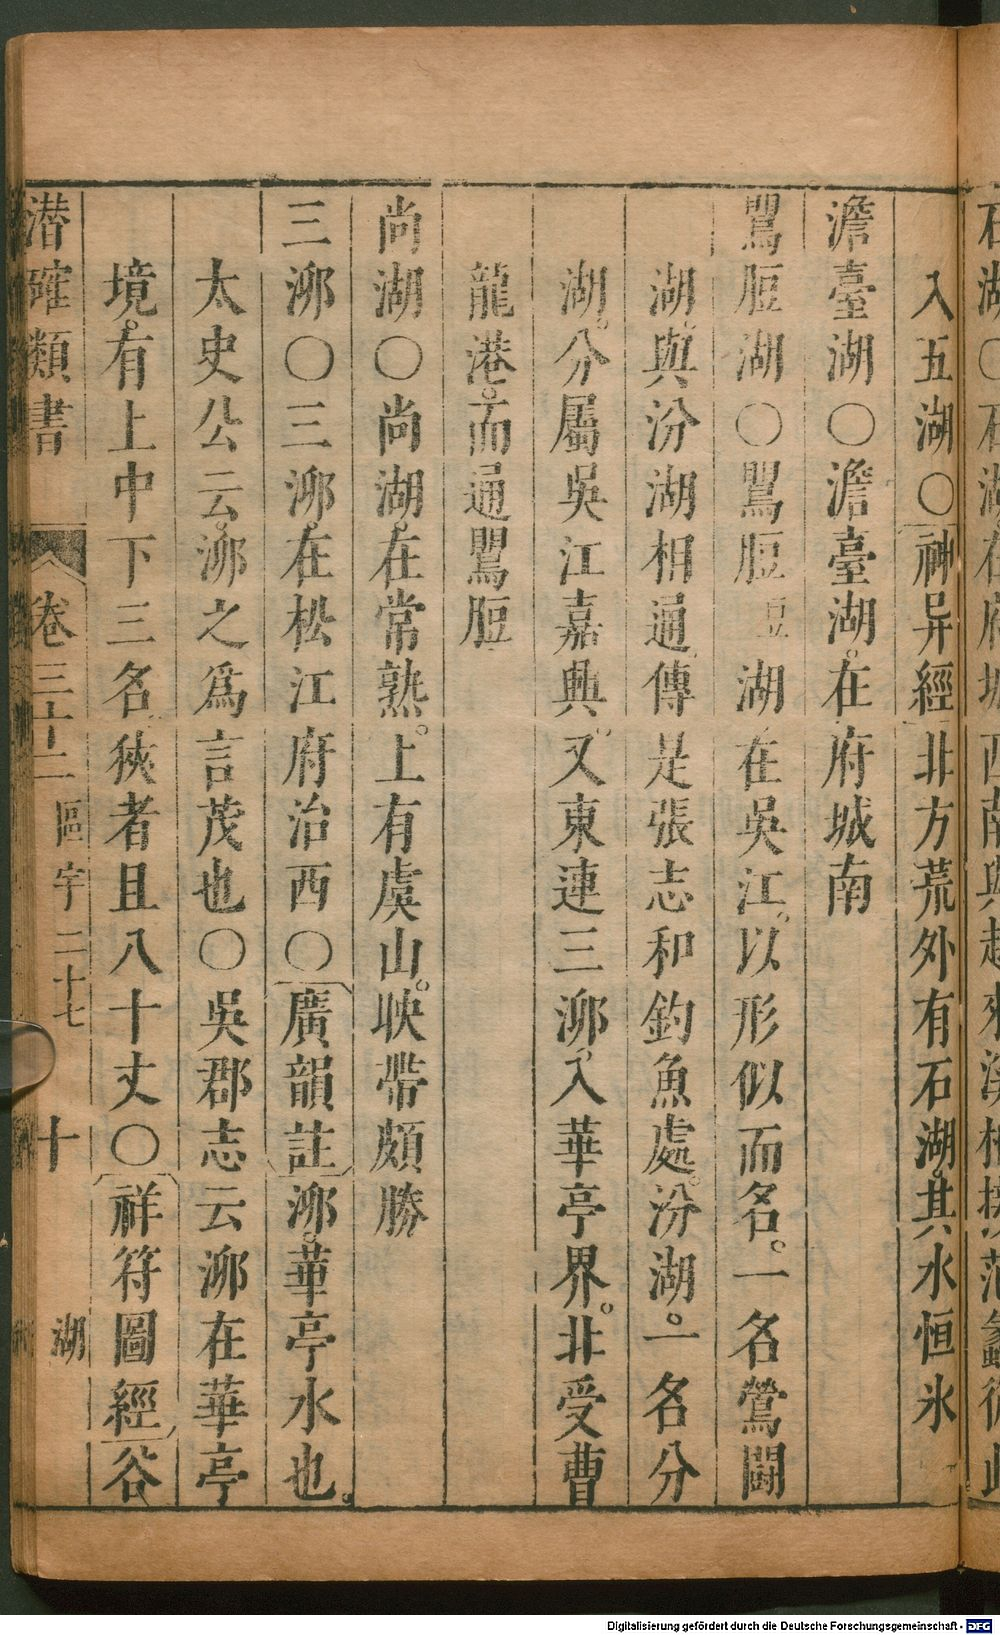 石湖○石湖在府城西南與越來溪相接范蠡從此
入五湖○神异經北方荒外有石湖。其水恒氷
澹臺湖○澹臺湖。在府城南
鸎脰湖○鸎脰豆湖在吳江。以形似而名。一名鶯鬭
湖。與汾湖相通。傳是張志和釣魚處。汾湖。一名分
湖。分屬吳江嘉興。又東連三泖。入華亭界。北受曹
龍港。而通鸎脰
尚湖○尚湖。在常熟。上有虞山。映帶頗勝
三泖○三泖。在松江府治西○廣韻註泖。華亭水也。
太史公云。泖之為言茂也○吳郡志云泖在華亭
境。有上中下三名。狹者且八十丈○祥符圖經谷
潜確類書 卷三十二 區宇二十七 十 湖
Digitalisierung gefördert durch die Deutsche Forschungsgemeinschaft - DFG